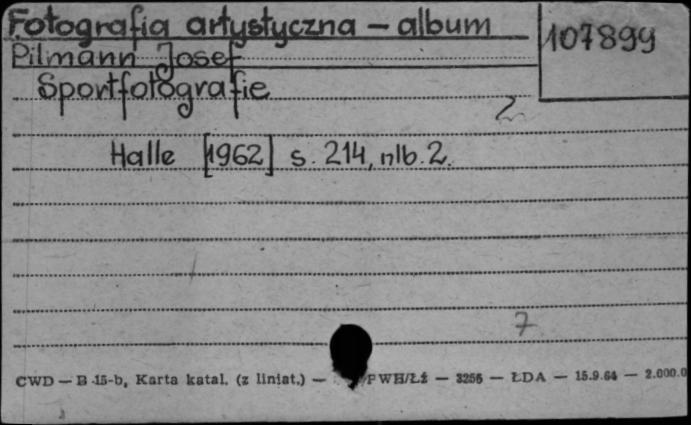 Fotografia artystyczna – album
107899
Pilmann Josef
Sportfotografie
2
Halle [1962] s. 214, nlb. 2.
7
CWD — B 15-b, Karta katal. (z liniat.) — PWH/Łź — 3256 — ŁDA — 15.9.64 — 2.000.0